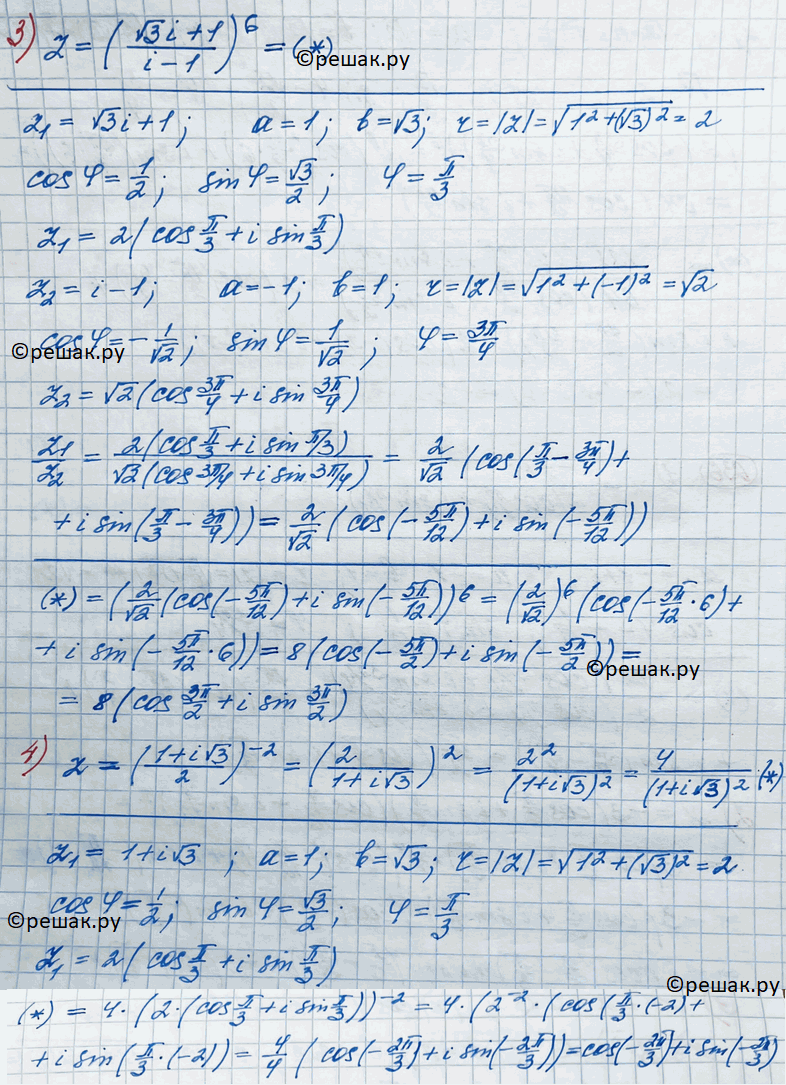 3) z = (√3i+1 / i−1)^6 = (*)
©решак.ру
z₁ = √3i+1; a=1; b=√3; r=|z|=√(1²+(√3)²)=2
cosφ=1/2; sinφ=√3/2; φ=π/3
z₁ = 2(cos π/3 + i sin π/3)
z₂ = i−1; a=−1; b=1; r=|z|=√(1²+(−1)²)=√2
cosφ=−1/√2; sinφ=1/√2; φ=3π/4
©решак.ру
z₂ = √2(cos 3π/4 + i sin 3π/4)
z₁/z₂ = 2(cos π/3 + i sin π/3) / √2(cos 3π/4 + i sin 3π/4) = 2/√2 (cos(π/3 − 3π/4)+
+ i sin(π/3 − 3π/4)) = 2/√2 (cos(−5π/12)+i sin(−5π/12))
(*) = (2/√2 (cos(−5π/12)+i sin(−5π/12))^6 = (2/√2)^6 (cos(−5π/12·6)+
+ i sin(−5π/12·6)) = 8(cos(−5π/2)+i sin(−5π/2)) =
©решак.ру
= 8(cos 3π/2 + i sin 3π/2)
4) z = (1+i√3 / 2)^−2 = (2 / 1+i√3)² = 2² / (1+i√3)² = 4 / (1+i√3)² (*)
z₁ = 1+i√3; a=1; b=√3; r=|z|=√(1²+(√3)²)=2
cosφ=1/2; sinφ=√3/2; φ=π/3
©решак.ру
z₁ = 2(cos π/3 + i sin π/3)
©решак.ру
(*) = 4·(2·(cos π/3 + i sin π/3))^−2 = 4·(2^−2·(cos(π/3·(−2)+
+ i sin(π/3·(−2)) = 4/4 (cos(−2π/3)+i sin(−2π/3))=cos(−2π/3)+i sin(−2π/3)